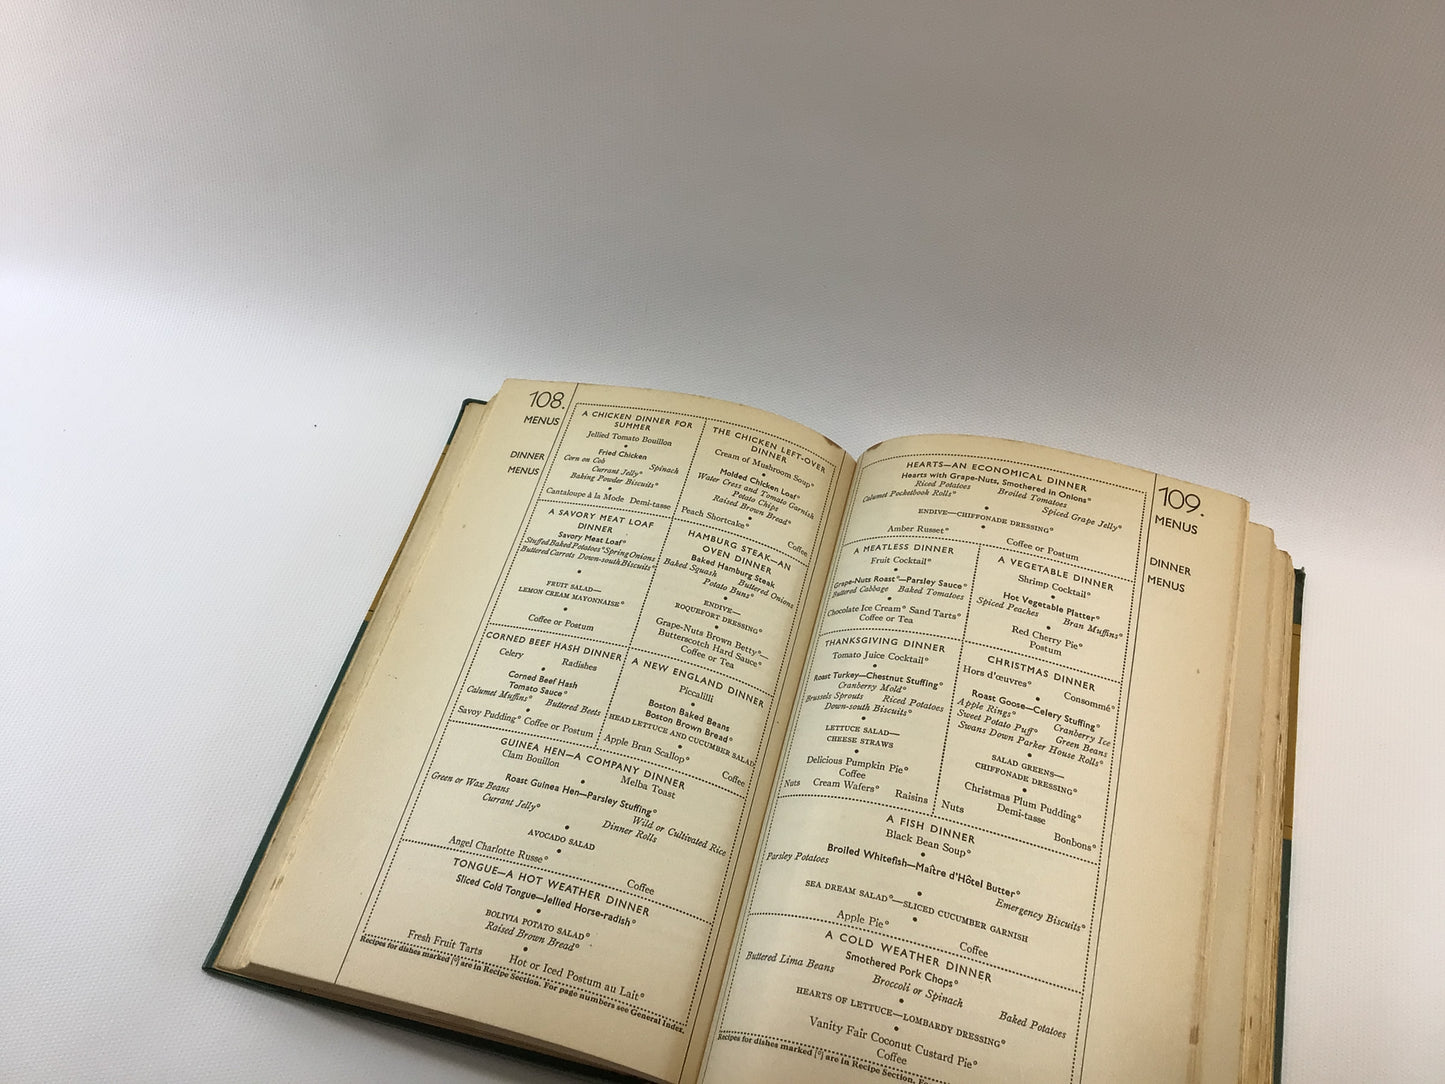 108.
MENUS
DINNER
MENUS
A CHICKEN DINNER FOR
SUMMER
Jellied Tomato Bouillon
Fried Chicken
Corn on Cob Spinach
Currant Jelly°
Baking Powder Biscuits°
Cantaloupe à la Mode Demi-tasse
THE CHICKEN LEFT-OVER
DINNER
Cream of Mushroom Soup°
Molded Chicken Loaf°
Water Cress and Tomato Garnish
Potato Chips
Raised Brown Bread°
Peach Shortcake° Coffee
A SAVORY MEAT LOAF
DINNER
Savory Meat Loaf°
Stuffed Baked Potatoes° Spring Onions
Buttered Carrots Down-south Biscuits°
FRUIT SALAD—
LEMON CREAM MAYONNAISE°
Coffee or Postum
HAMBURG STEAK—AN
OVEN DINNER
Baked Hamburg Steak
Baked Squash Buttered Onions
Potato Buns°
ENDIVE—
ROQUEFORT DRESSING°
Grape-Nuts Brown Betty°—
Butterscotch Hard Sauce°
Coffee or Tea
CORNED BEEF HASH DINNER
Celery Radishes
Corned Beef Hash
Tomato Sauce°
Calumet Muffins° Buttered Beets
Savoy Pudding° Coffee or Postum
A NEW ENGLAND DINNER
Piccalilli
Boston Baked Beans
Boston Brown Bread°
HEAD LETTUCE AND CUCUMBER SALAD
Apple Bran Scallop°
Coffee
GUINEA HEN—A COMPANY DINNER
Clam Bouillon Melba Toast
Roast Guinea Hen—Parsley Stuffing°
Green or Wax Beans Wild or Cultivated Rice
Currant Jelly° Dinner Rolls
AVOCADO SALAD
Angel Charlotte Russe° Coffee
TONGUE—A HOT WEATHER DINNER
Sliced Cold Tongue—Jellied Horse-radish°
BOLIVIA POTATO SALAD°
Raised Brown Bread°
Fresh Fruit Tarts Hot or Iced Postum au Lait°
Recipes for dishes marked [°] are in Recipe Section. For page numbers see General Index.
109.
MENUS
DINNER
MENUS
HEARTS—AN ECONOMICAL DINNER
Hearts with Grape-Nuts, Smothered in Onions°
Riced Potatoes Broiled Tomatoes
Calumet Pocketbook Rolls° Spiced Grape Jelly°
ENDIVE—CHIFFONADE DRESSING°
Amber Russet° Coffee or Postum
A MEATLESS DINNER
Fruit Cocktail°
Grape-Nuts Roast°—Parsley Sauce°
Buttered Cabbage Baked Tomatoes
Chocolate Ice Cream° Sand Tarts°
Coffee or Tea
A VEGETABLE DINNER
Shrimp Cocktail°
Hot Vegetable Platter°
Spiced Peaches Bran Muffins°
Red Cherry Pie°
Postum
THANKSGIVING DINNER
Tomato Juice Cocktail°
Roast Turkey—Chestnut Stuffing°
Cranberry Mold°
Brussels Sprouts Riced Potatoes
Down-south Biscuits°
LETTUCE SALAD—
CHEESE STRAWS
Delicious Pumpkin Pie°
Coffee
Nuts Cream Wafers° Raisins
CHRISTMAS DINNER
Hors d'œuvres° Consommé°
Roast Goose—Celery Stuffing°
Apple Rings° Cranberry Ice
Sweet Potato Puff° Green Beans
Swans Down Parker House Rolls°
SALAD GREENS—
CHIFFONADE DRESSING°
Christmas Plum Pudding°
Nuts Demi-tasse Bonbons°
A FISH DINNER
Black Bean Soup°
Broiled Whitefish—Maître d'Hôtel Butter°
Parsley Potatoes Emergency Biscuits°
SEA DREAM SALAD°—SLICED CUCUMBER GARNISH
Apple Pie° Coffee
A COLD WEATHER DINNER
Smothered Pork Chops°
Buttered Lima Beans Broccoli or Spinach Baked Potatoes
HEARTS OF LETTUCE—LOMBARDY DRESSING°
Vanity Fair Coconut Custard Pie°
Coffee
Recipes for dishes marked [°] are in Recipe Section.